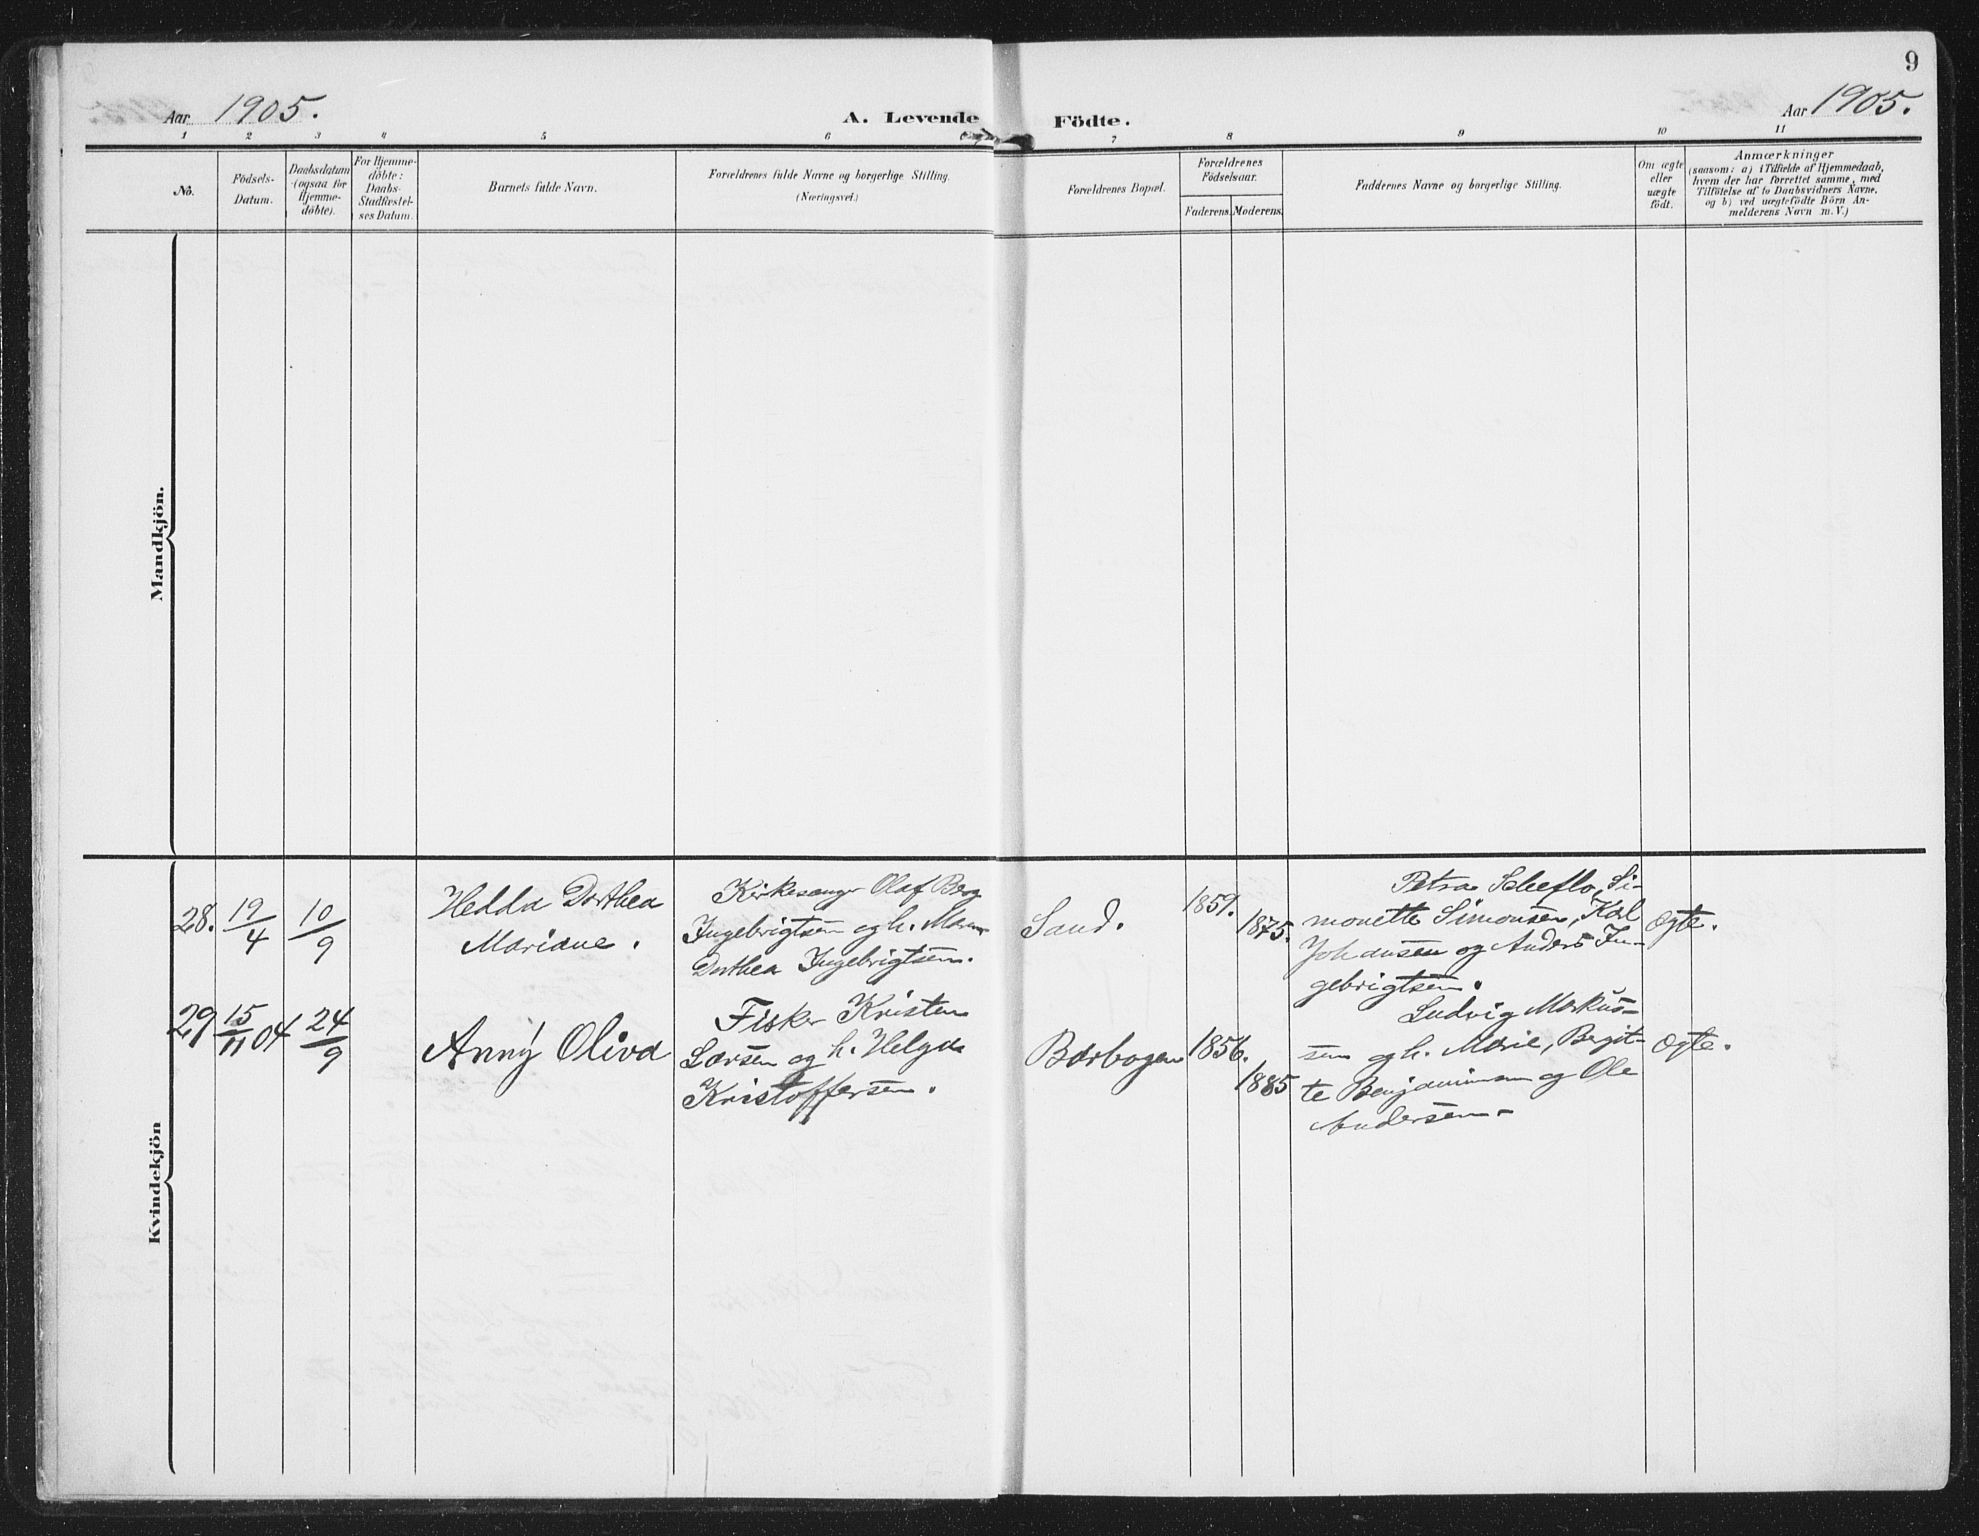 9
Aar 1905.
A. Levende
Födte.
Aar 1905.
1 2 3 4 5 6 7 8 9 10 11
No.
Födsels-
Datum.
Daabsdatum
(ogsaa for
Hjemme-
döbte).
For Hjemme-
döbte:
Daabs-
Stadfæstel-
ses Datum.
Barnets fulde Navn.
Forældrenes fulde Navne og borgerlige Stilling.
(Næringsvei.)
Forældrenes Bopæl.
Forældrenes
Födselsaar.
Faderens. Moderens.
Faddernes Navne og borgerlige Stilling.
Om ægte
eller
uægte
födt.
Anmærkninger
(saasom: a) i Tilfælde af Hjemmedaab,
hvem der har forrettet samme, med
Tilföielse af to Daabsvidners Navne.
og b) ved uægtefödte Börn An-
melderens Navn m. V.)
Mandkjön.
Kvindekjön
28.
19/4
10/9
Hedda Dorthea
Mariane.
Kirkesanger Olaf Berg
Ingebrigtsen og h. Maren
Dorthea Ingebrigtsen.
Sand.
1859.
1875.
Petra Scheflo, Si-
monette Simonsen, Karl
Johansen og Anders In-
gebrigtsen.
Ægte.
29
15/11 04
24/9
Anny Oliva
Fisker Kristen
Larsen og h. Helga
Kristoffersen.
Barbogen
1856.
1885
Ludvig Markus-
sen og h. Marie, Bergit-
te Benjaminsen og Ole
Andersen.
Ægte.